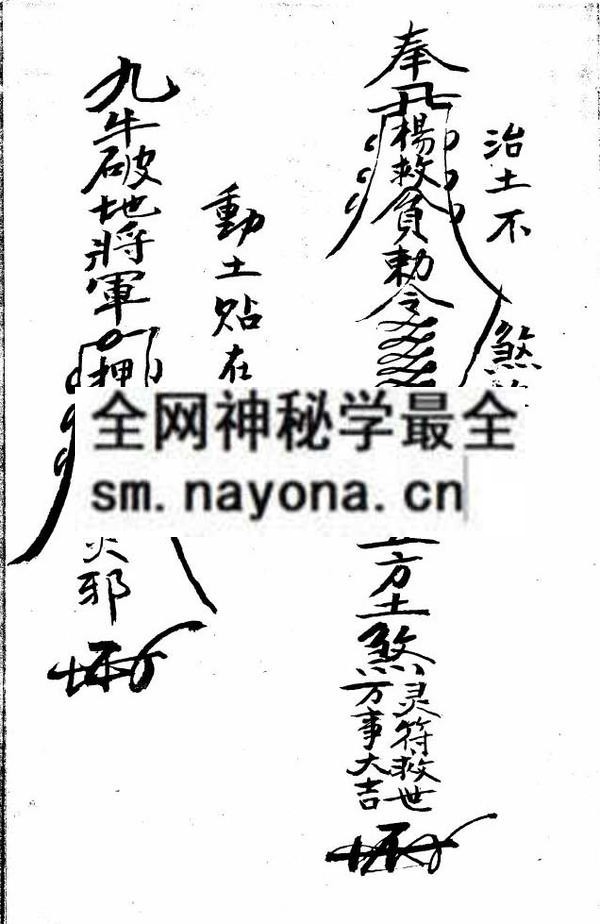 治土不
煞
奉
楊救負勅令
方土煞
灵符救世
万事大吉
動土贴在
九牛破地將軍
押
邪
全网神秘学最全
sm.nayona.cn